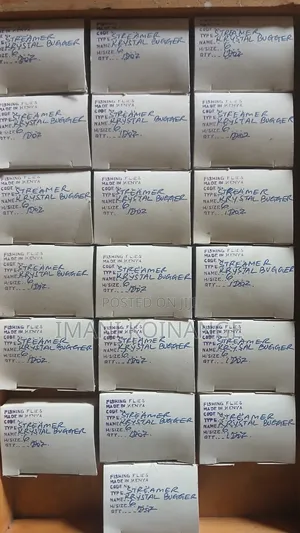 CODE
TYPE STREAMER
NAME KRYSTAL BUGGER
H/SIZE 6
QTY.... 1DOZ
MADE IN KENYA
CODE
TYPE STREAMER
NAME KRYSTAL BUGGER
H/SIZE 6
QTY.... 1DOZ
MADE IN KENYA
CODE
TYPE STREAMER
NAME KRYSTAL BUGGER
H/SIZE 6
QTY.... 1DOZ
FISHING FLIES
MADE IN KENYA
CODE
TYPE STREAMER
NAME KRYSTAL BUGGER
H/SIZE 6
QTY.... 1DOZ
FISHING FLIES
MADE IN KENYA
CODE
TYPE STREAMER
NAME KRYSTAL BUGGER
H/SIZE 6
QTY.... 1DOZ
FISHING FLIES
MADE IN KENYA
CODE
TYPE STREAMER
NAME KRYSTAL BUGGER
H/SIZE 6
QTY.... 1DOZ
FISHING FLIES
MADE IN KENYA
CODE
TYPE STREAMER
NAME KRYSTAL BUGGER
H/SIZE 6
QTY.... 1DOZ
FISHING FLIES
MADE IN KENYA
CODE
TYPE STREAMER
NAME KRYSTAL BUGGER
H/SIZE 6
QTY.... 1DOZ
FISHING FLIES
MADE IN KENYA
CODE
TYPE STREAMER
NAME KRYSTAL BUGGER
H/SIZE 6
QTY.... 1DOZ
FISHING FLIES
MADE IN KENYA
CODE
TYPE STREAMER
NAME KRYSTAL BUGGER
H/SIZE 6
QTY.... 1DOZ
FISHING FLIES
MADE IN KENYA
CODE
TYPE STREAMER
NAME KRYSTAL BUGGER
H/SIZE 6
QTY.... 1DOZ
FISHING FLIES
MADE IN KENYA
CODE
TYPE STREAMER
NAME KRYSTAL BUGGER
H/SIZE 6
QTY.... 1DOZ
POSTED ON
FISHING FLIES
MADE IN KENYA
CODE
TYPE STREAMER
NAME KRYSTAL BUGGER
H/SIZE 6
QTY.... 1DOZ
FISHING FLIES
MADE IN KENYA
CODE
TYPE STREAMER
NAME KRYSTAL BUGGER
H/SIZE 6
QTY.... 1DOZ
FISHING FLIES
MADE IN KENYA
CODE
TYPE STREAMER
NAME KRYSTAL BUGGER
H/SIZE 6
QTY.... 1DOZ
FISHING FLIES
MADE IN KENYA
CODE
TYPE STREAMER
NAME KRYSTAL BUGGER
H/SIZE 6
QTY.... 1DOZ
FISHING FLIES
MADE IN KENYA
CODE
TYPE STREAMER
NAME KRYSTAL BUGGER
H/SIZE 6
QTY.... 1DOZ
FISHING FLIES
MADE IN KENYA
CODE
TYPE STREAMER
NAME KRYSTAL BUGGER
H/SIZE 6
QTY.... 1DOZ
FISHING FLIES
MADE IN KENYA
CODE
TYPE STREAMER
NAME KRYSTAL BUGGER
H/SIZE 6
QTY.... 1DOZ